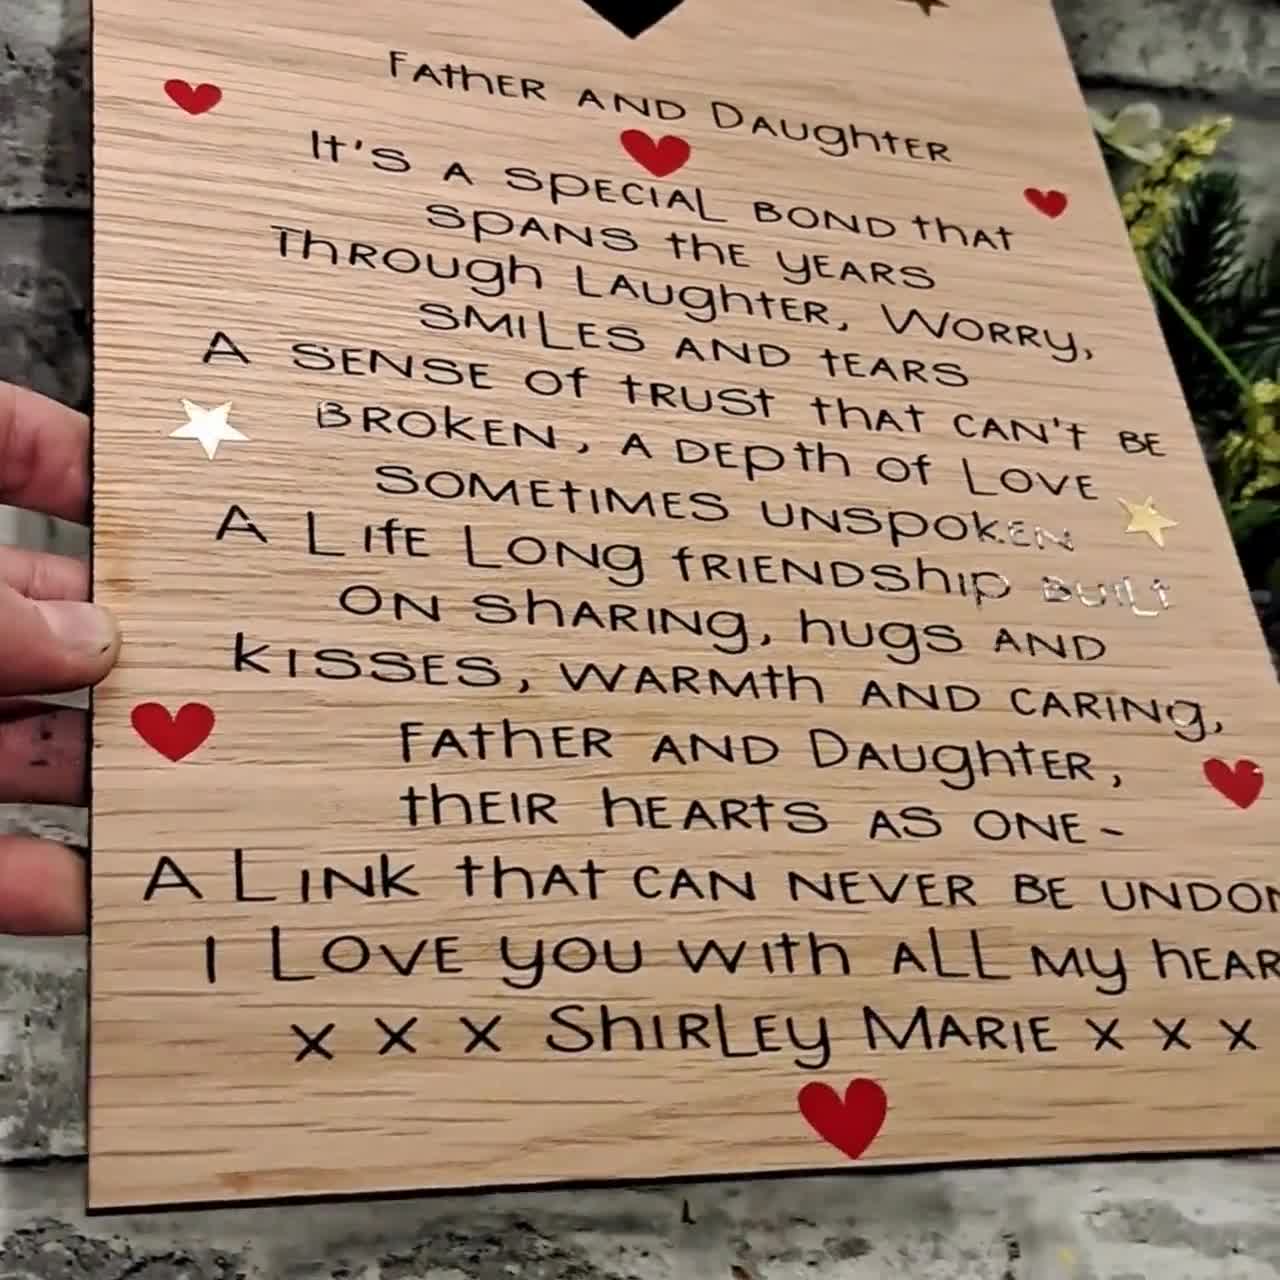 Father and Daughter
It's a special bond that
spans the years
Through Laughter, Worry,
smiles and tears
A sense of trust that can't be
broken, a depth of Love
sometimes unspoken
A Life Long friendship built
on sharing, hugs and
kisses, warmth and caring,
Father and Daughter,
their hearts as one-
A Link that can never be undon
I Love you with all my hear
x x x Shirley Marie x x x